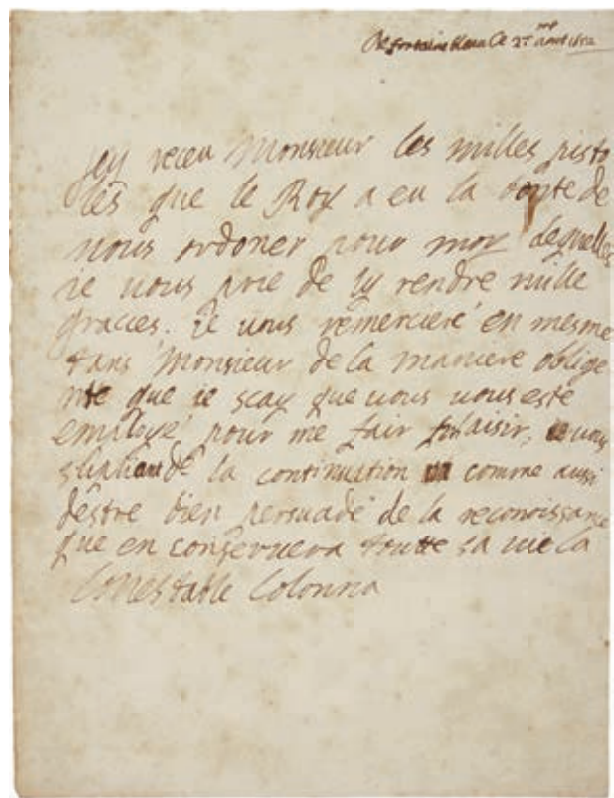 De fontainebleau Ce 2me aout 1672
Jey receu Monsieur les milles pisto
les que le Roy a eu la bonte de
vous ordoner pour moy desquelles
ie vous prie de ly rendre mille
graces. ie vous remercieré en mesme
tans Monsieur de la maniere oblige
nte que ie scay que vous vous este
employé pour me fair plaisir, ie vous
de la continuation comme aussi
destre bien persuadé de la reconoissance
que en conservera toutte sa vie la
Conestable Colonna